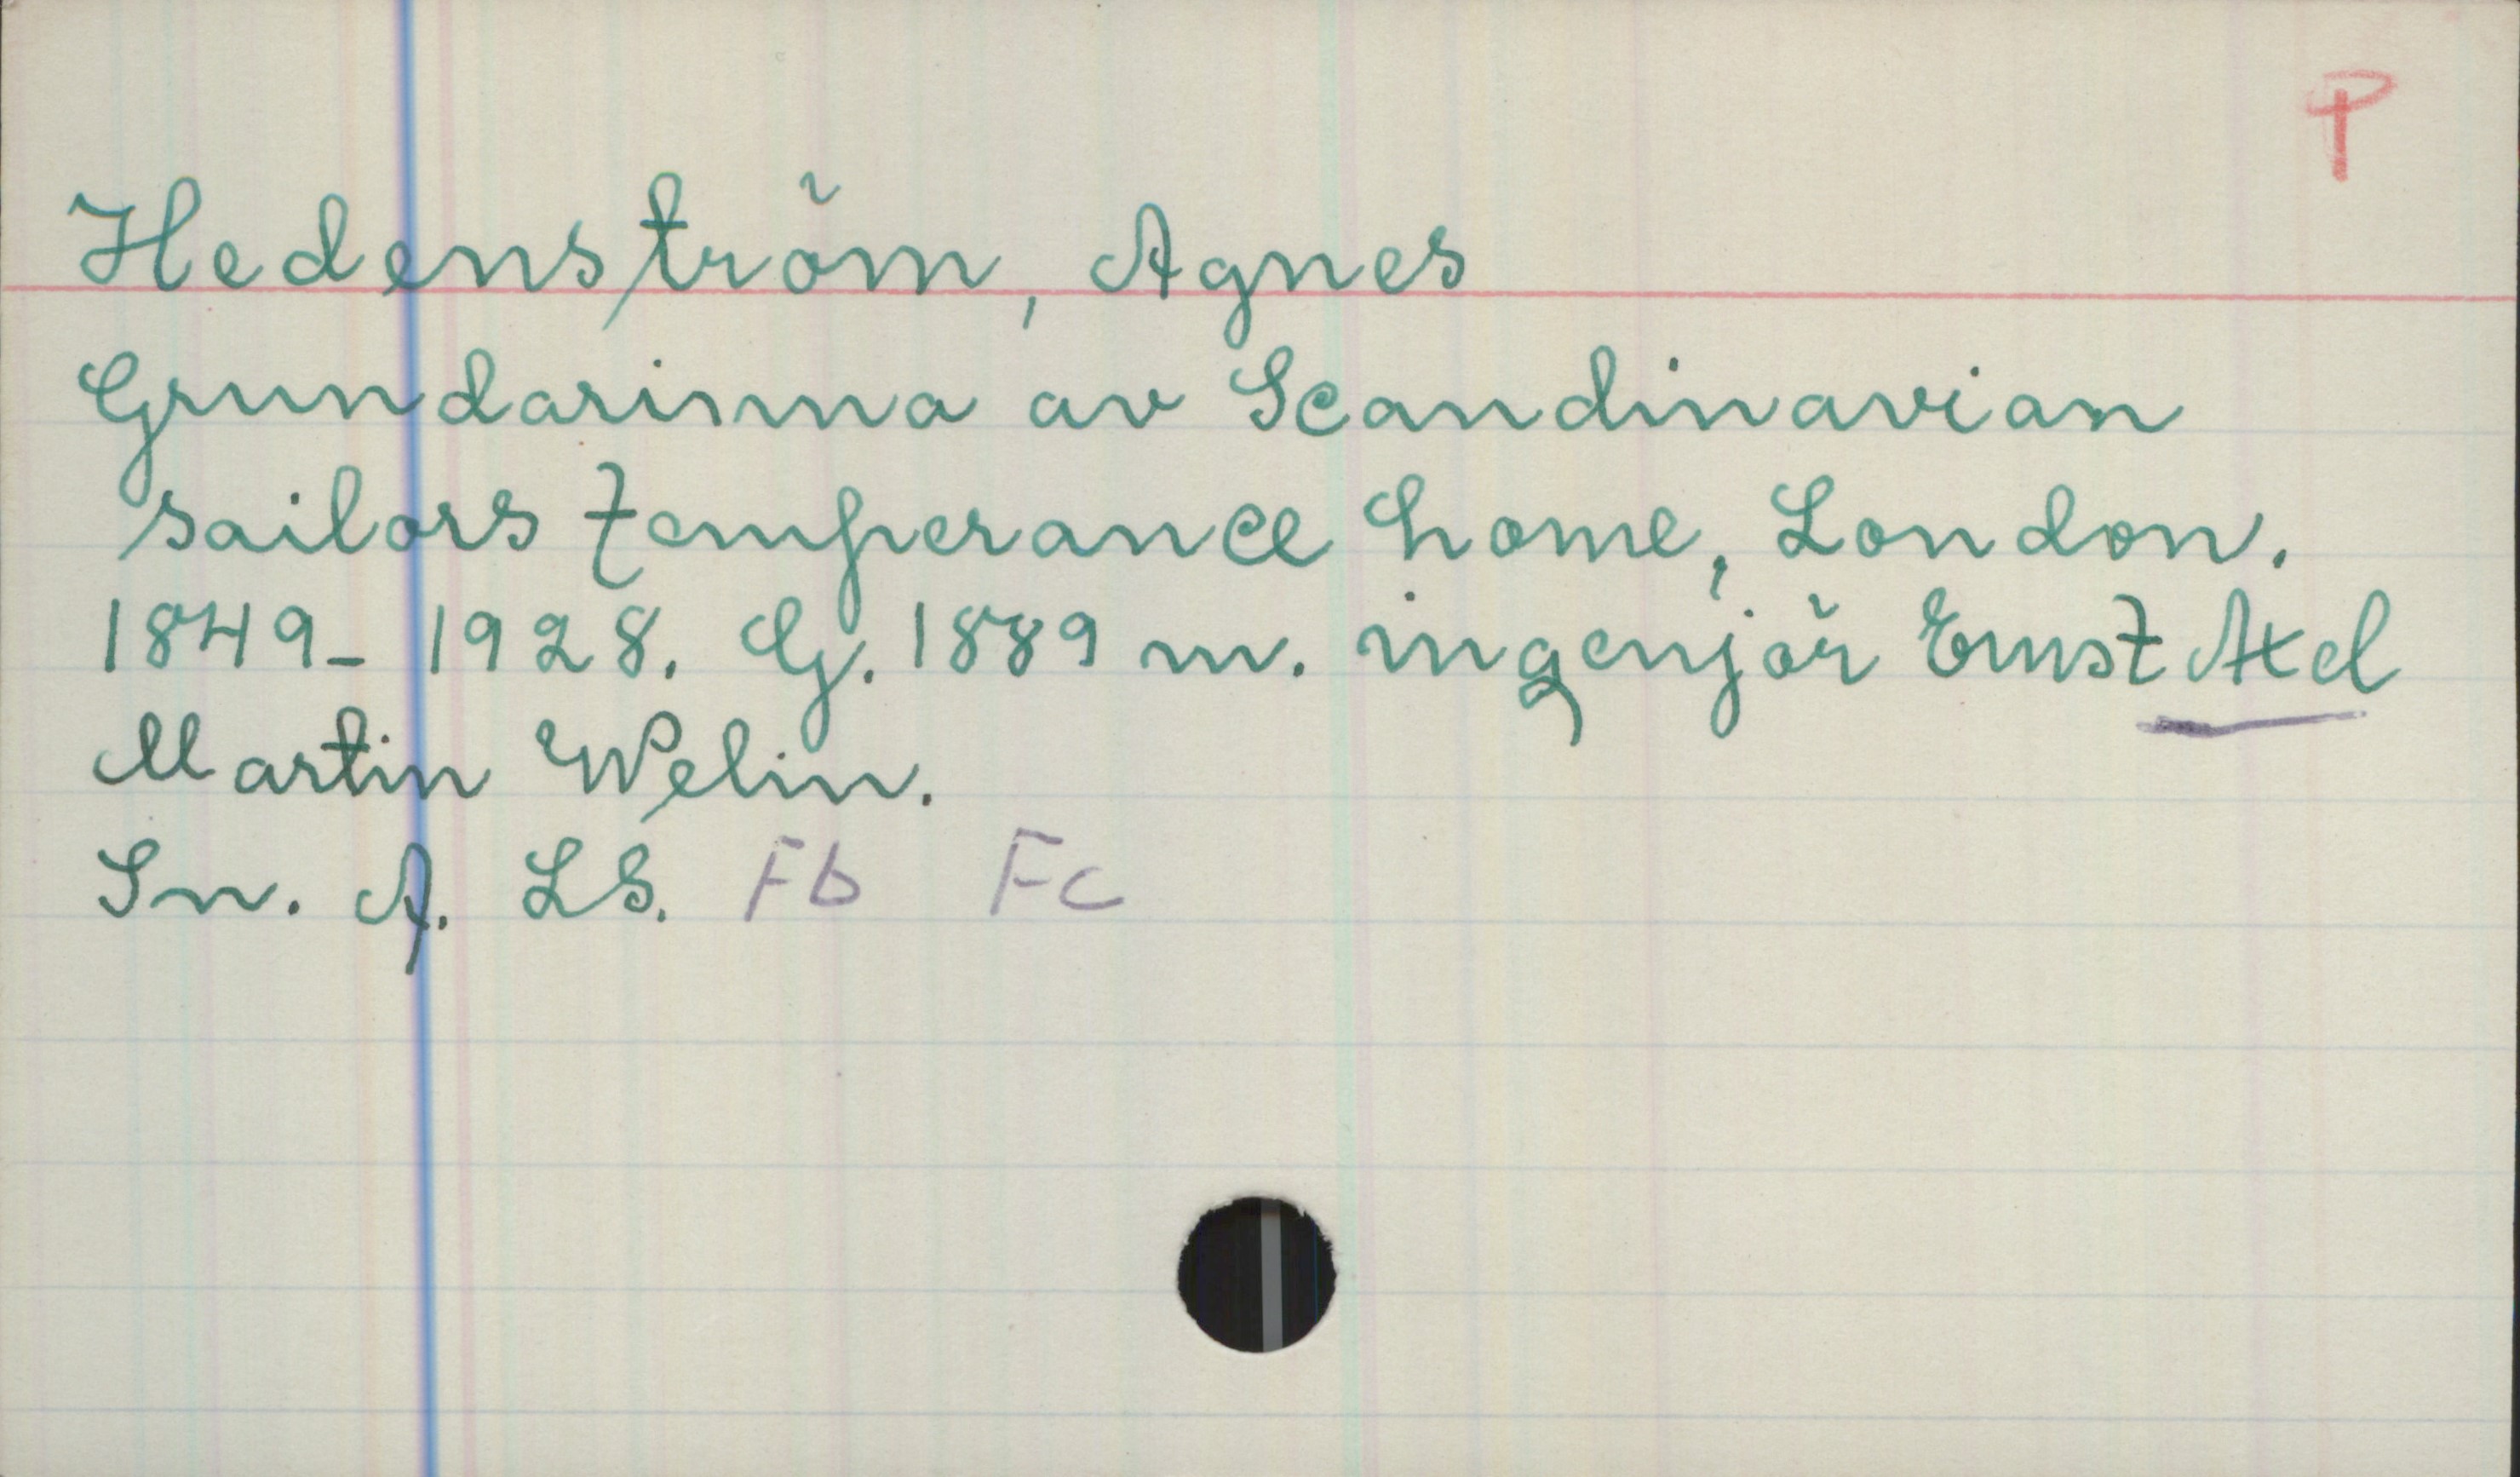 P
Hedenström, Agnes
Grundarinna av Scandinavian
sailors temperance home, London.
1849-1928. G. 1889 m. ingenjör Ernst Axel
Martin Welin.
Sn. A. LS. Fb Fc